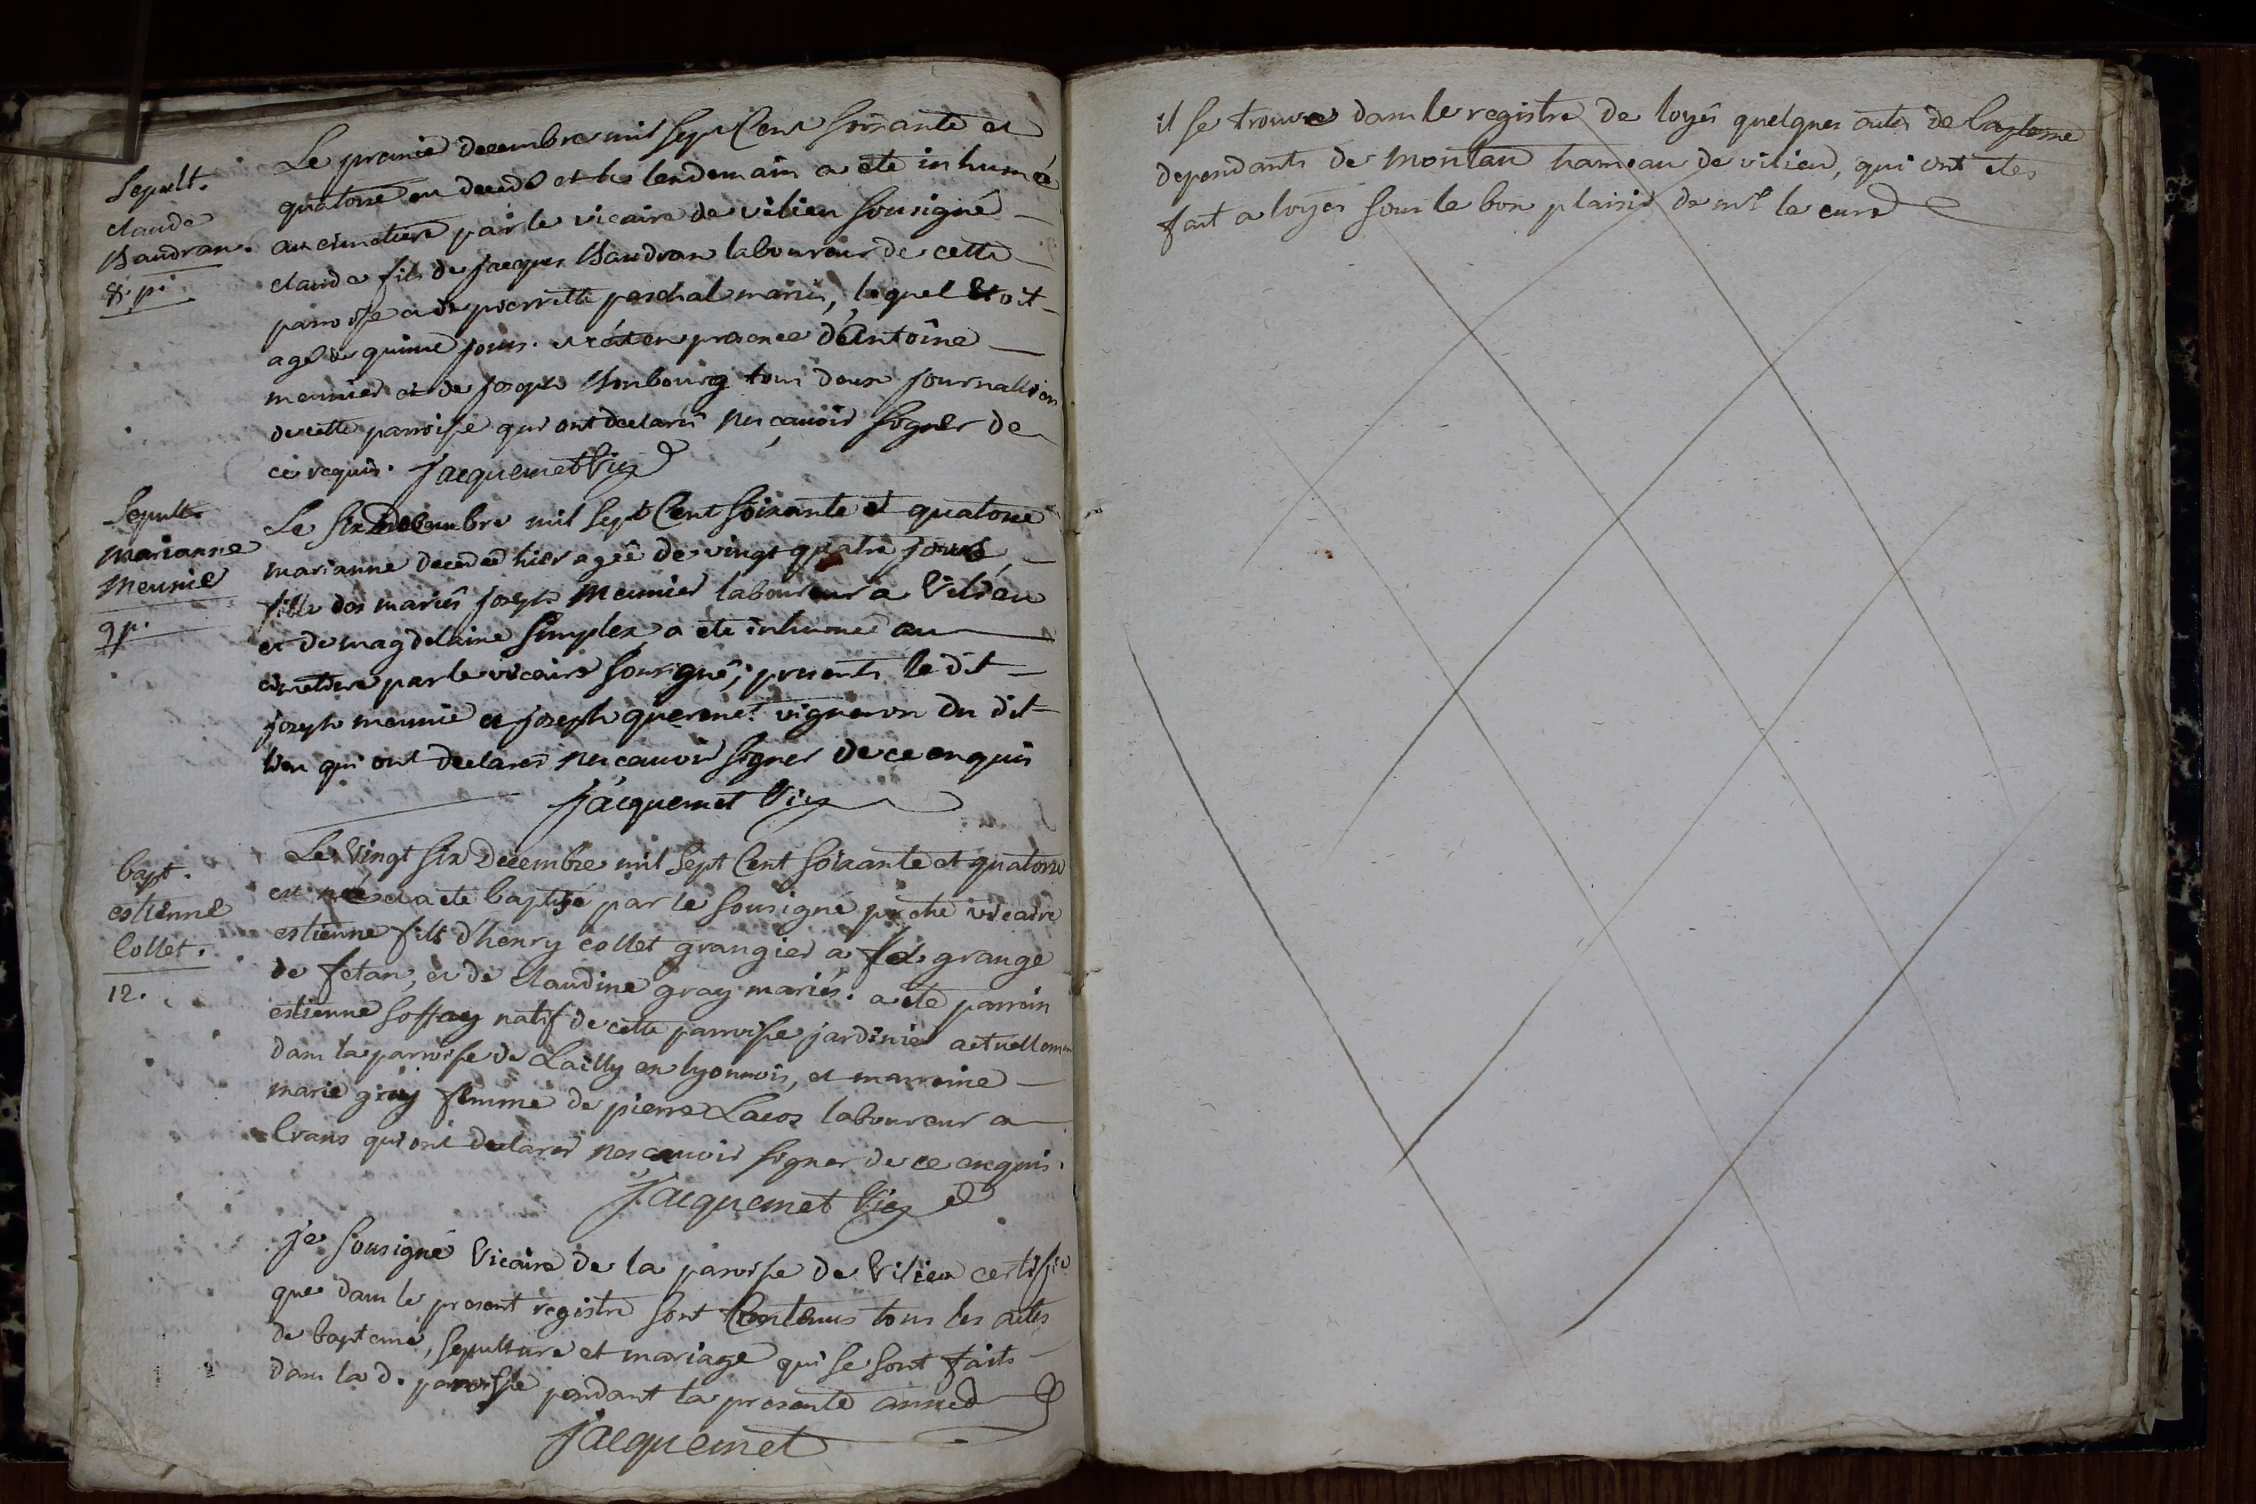 Sepult.
claude
Chaudran.
8. p.
Le premier decembre mil sept Cent soixante et
quatorze est decedé et le lendemain a eté inhumé
au cimetiere par le vicaire de vilieu sousigné
claude fils de jacques Chaudran laboureur de cette
parroisse et de pierrette paschal mariés, lequel étoit
agé de quinze jours. et c'est en presence d'Antoîne
meunier et de joseph tous deux journalliers
de cette parroisse qui ont declarés ne sçavoir signer de
ce requis. jacquemet Vic
Sepult.
marianne
Meunié
9 p.
Le six Decembre mil sept Cent soixante et quatorze
marianne decedeé hier ageê de vingt quatre jours,
fille des mariés joseph Meunier laboureur a Vilieu
et de magdelaine Simplex a eté inhumeé au
cimetiere par le vicaire sousigné; presents le dit
joseph meunié et joseph vigneron du dit
lieu qui ont declarés ne sçavoir signer de ce enquis
jacquemet Vic
bapt.
estienne
Collet.
12.
Le Vingt six Decembre mil sept Cent soixante et quatorze
est né et a eté baptisé par le sousigné prêtre vicaire
estienne fils d'henry collet grangier a la grange
de fetan, et de claudine gray mariés. a eté parrain
estienne soffray natif de cette parroisse jardinier actuellement
dans la parroisse de Lailly en lyonnois, et marraine
marie gray femme de pierre Lacos laboureur a
Crans qui ont declarés ne sçavoir signer de ce enquis.
jacquemet Vic
je sousigné Vicaire de la paroisse de Vilieu certiffie
que dans le present registre sont Contenus tous les actes
de bapteme, sepulture et mariage qui se sont faits
dans la d. parroisse pendant la presente année
jacquemet
il se trouve dans le registre de loyes quelques actes de bapteme
dependants de Montan hameau de vilieu, qui ont etes
fait a loyes sous le bon plaisir de mr le curé